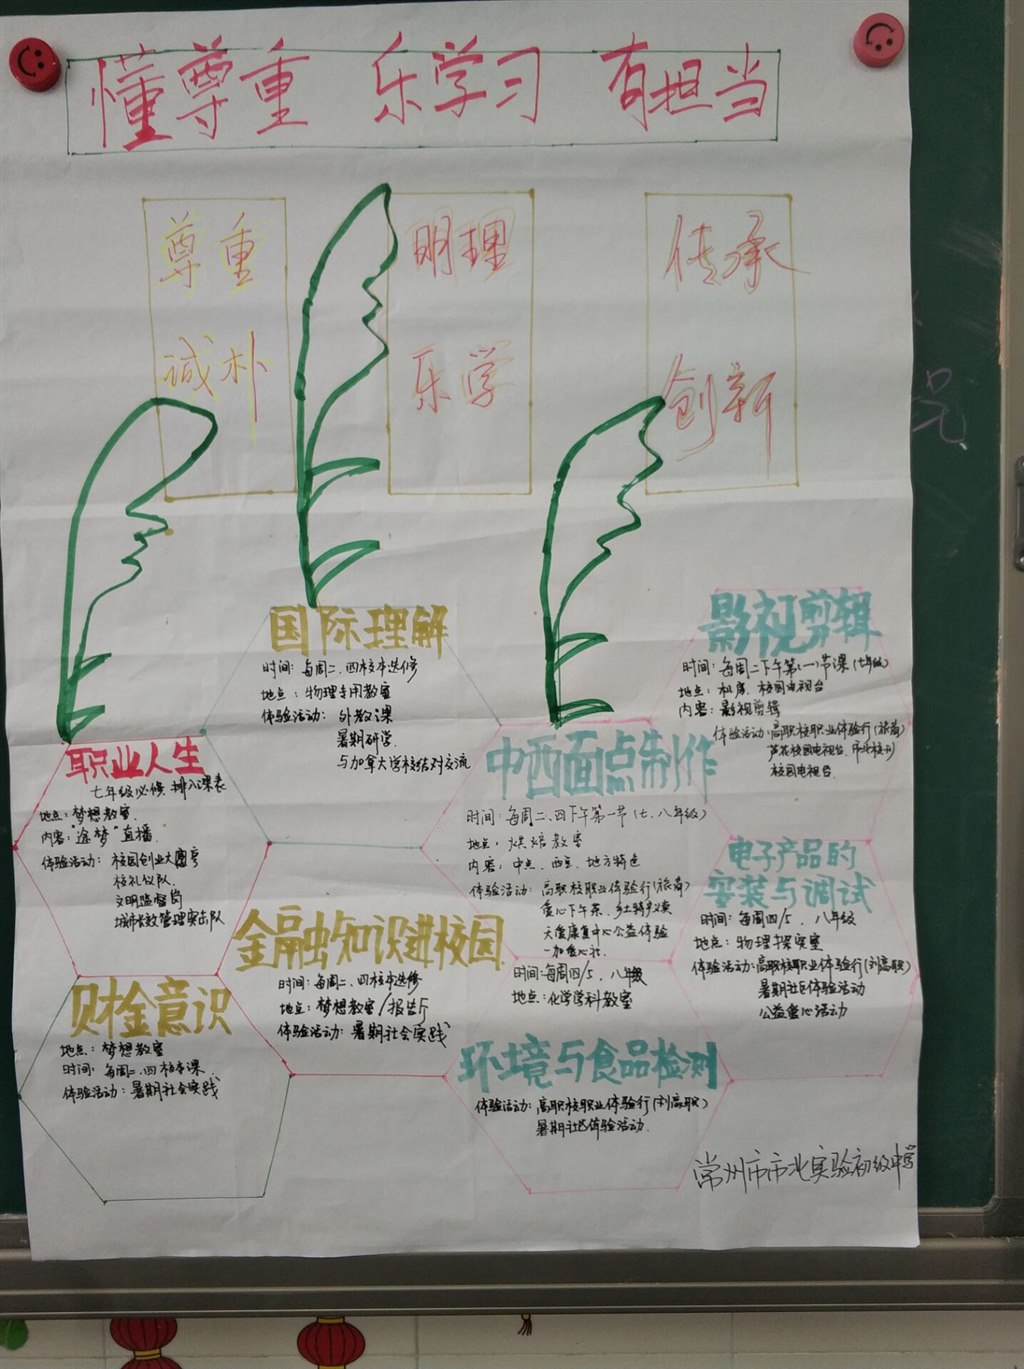 懂尊重 乐学习 有担当
尊重
诚朴
明理
乐学
传承
创新
国际理解
时间：每周二、四校本选修
地点：物理专用教室
体验活动：外教课
暑期研学
与加拿大学校结对交流
影视剪辑
时间：每周二下午第一节课（七年级）
地点：机房、校园电视台
内容：影视剪辑
体验活动：高职校职业体验行（旅商）
校园电视台
职业人生
七年级必修，排入课表
地点：梦想教室
内容："途梦"直播
体验活动：校园创业大圈享
校礼仪队
文明监督岗
城市长效管理突击队
中西面点制作
时间：每周二、四下午第一节（七、八年级）
地点：烘焙教室
内容：中点、西点、地方特色
体验活动：高职校职业体验行（旅商）
爱心下午茶、乡土特产卖
天爱康复中心公益体验
一加爱心社
电子产品的
安装与调试
时间：每周四/5、八年级
地点：物理探究室
体验活动：高职校职业体验行（刘高职）
暑期社区体验活动
公益爱心活动
金融知识进校园
时间：每周二、四校本选修
地点：梦想教室/报告厅
体验活动：暑期社会实践
时间：每周四/5、八年级
地点：化学学科教室
环境与食品检测
体验活动：高职校职业体验行（刘高职）
暑期社区体验活动
财金意识
地点：梦想教室
时间：每周二、四校本课
体验活动：暑期社会实践
常州市市北实验初级中学